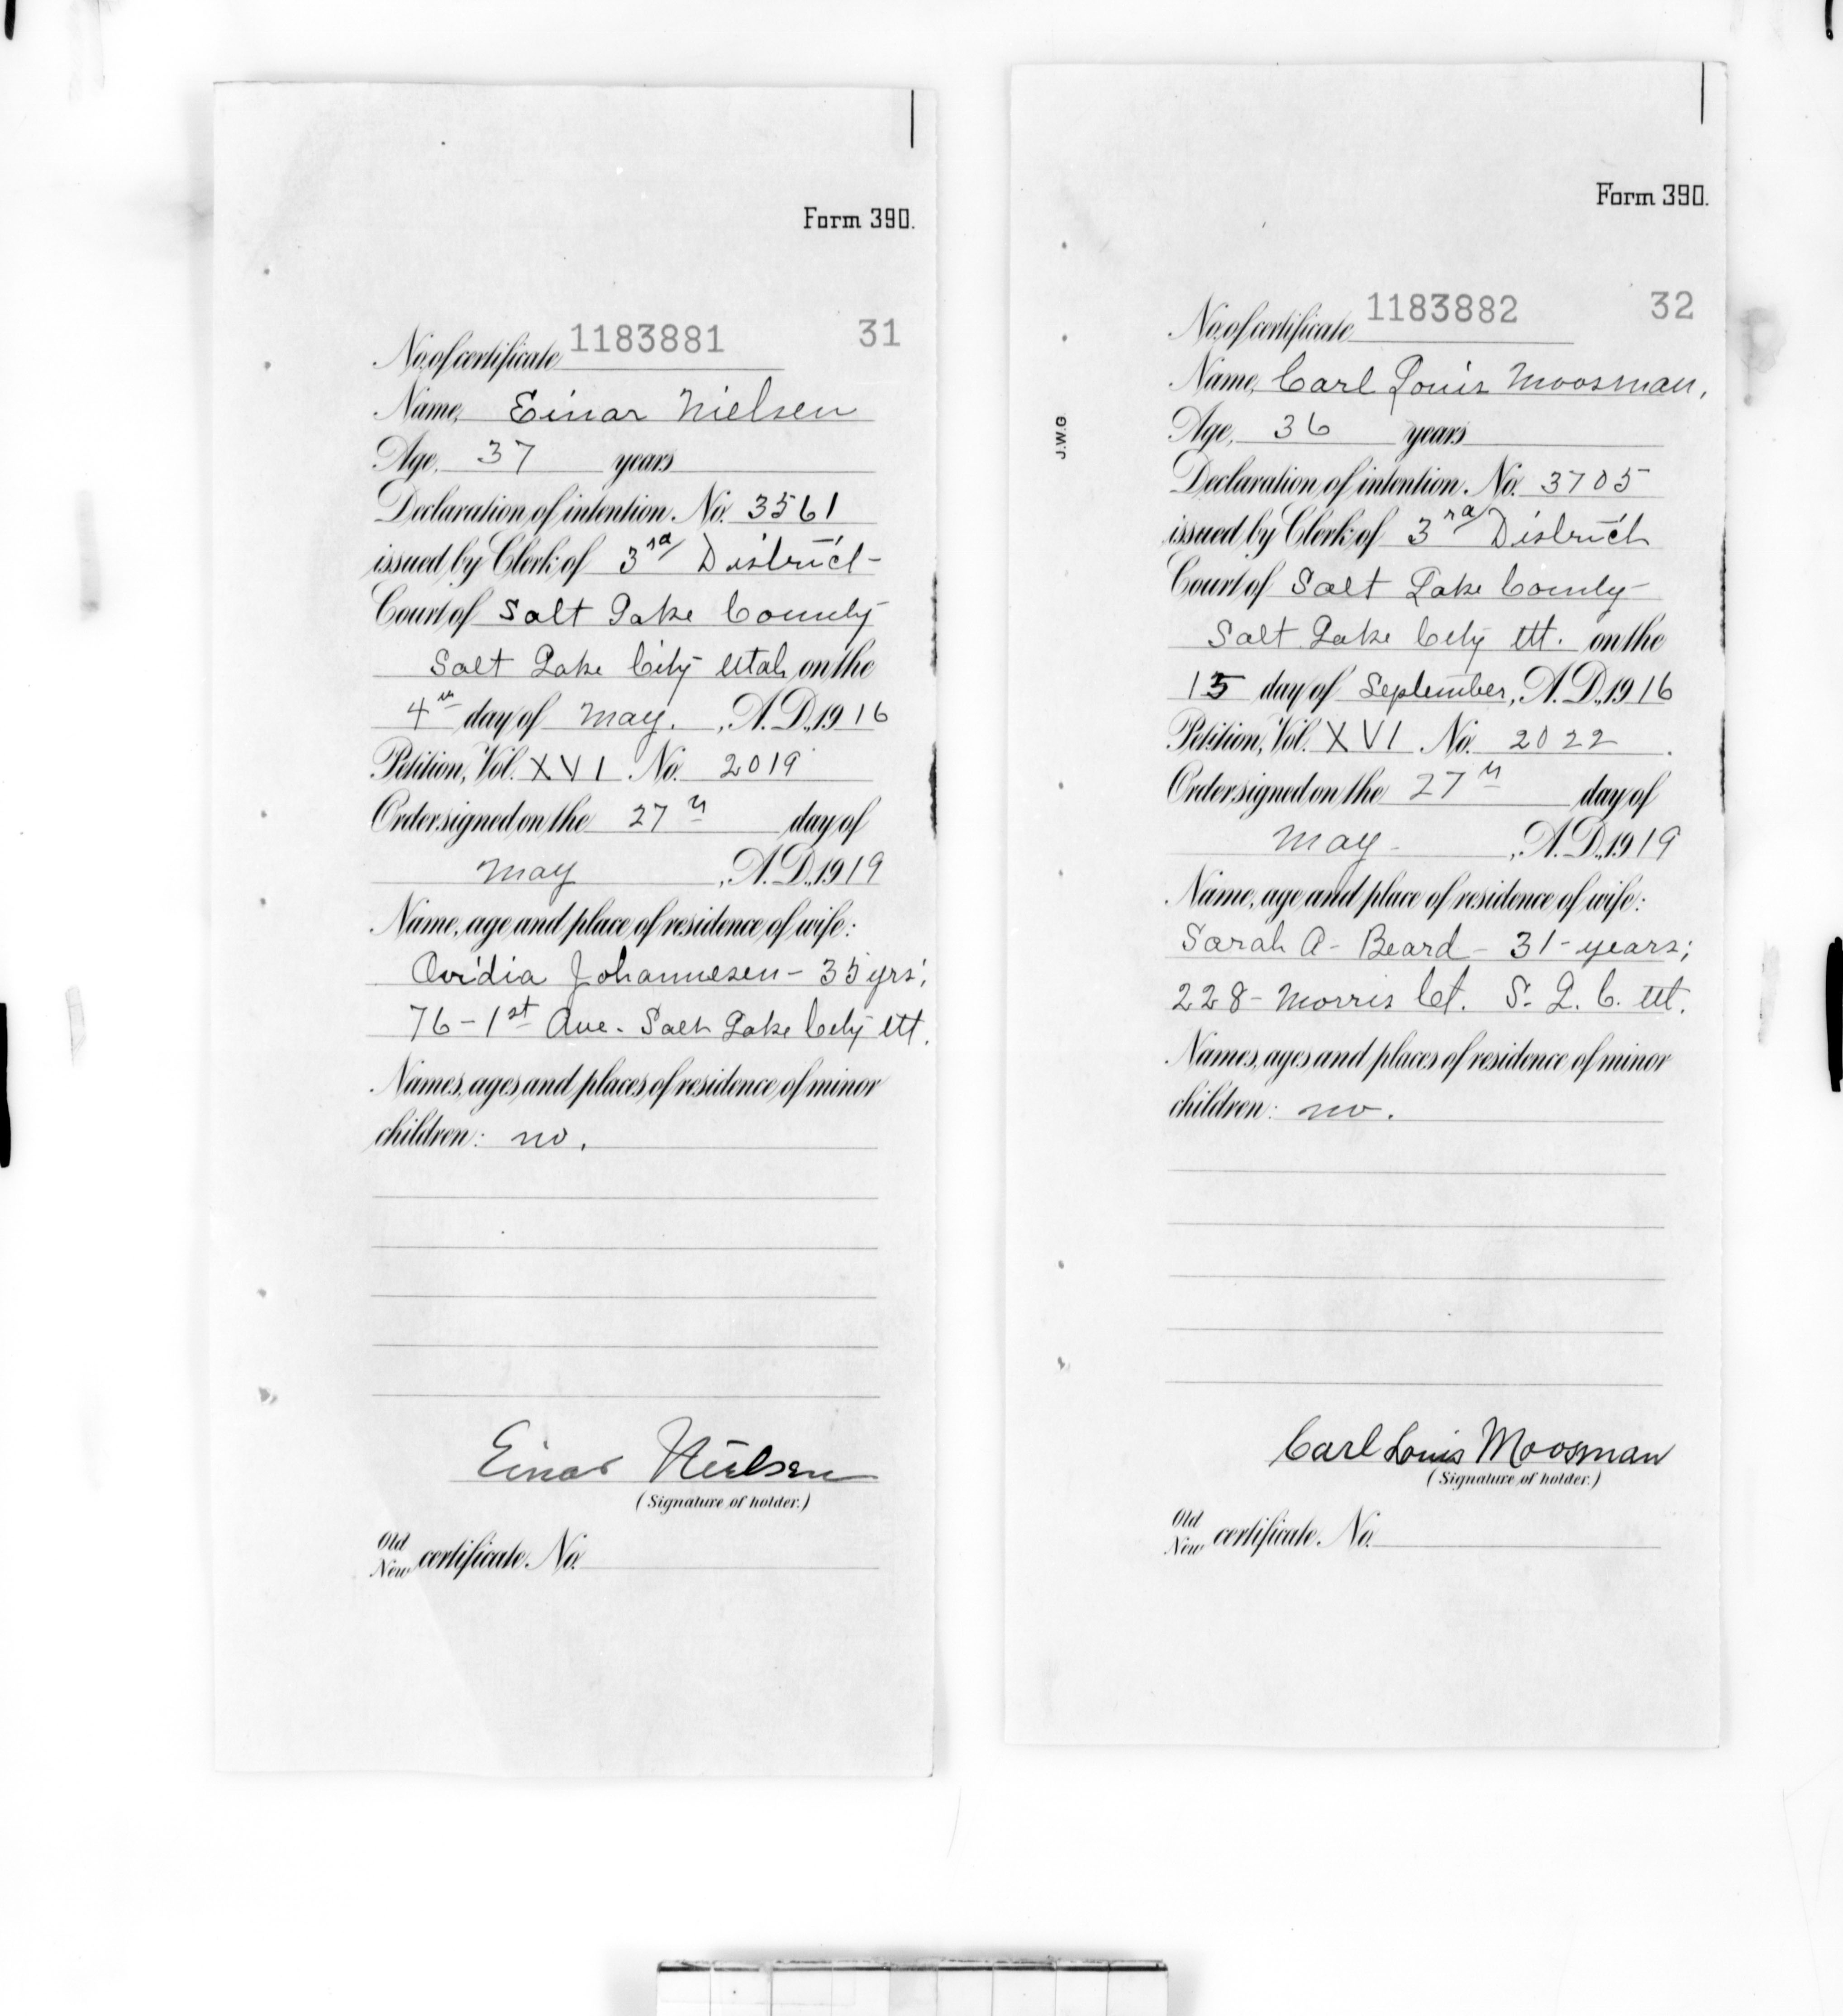 Form 390.
No. of certificate 1183881 31
Name, Einar Nielsen
Age, 37 years
Declaration of intention No. 3561
issued by Clerk of 3rd District
Court of Salt Lake County
Salt Lake City Utah on the
4th day of May. , A.D., 1916
Petition, Vol. XVI No. 2019
Order signed on the 27th day of
May , A.D., 1919
Name, age and place of residence of wife:
Ovidia Johannesen - 35 yrs;
76 - 1st Ave. Salt Lake City Ut.
Names, ages and places of residence of minor
children: no.
Einar Nielsen
(Signature of holder.)
Old
New certificate No.
Form 390.
No. of certificate 1183882 32
J.W.G
Name, Carl Louis Moosman,
Age, 36 years
Declaration of intention No. 3705
issued by Clerk of 3rd District
Court of Salt Lake County
Salt Lake City Ut. on the
15 day of September, A.D., 1916
Petition, Vol. XVI No. 2022.
Order signed on the 27th day of
May - , A.D., 1919
Name, age and place of residence of wife:
Sarah A - Beard - 31 - years;
228 - Morris Ct. S. L. C. Ut.
Names, ages and places of residence of minor
children: no.
Carl Louis Moosman
(Signature of holder.)
Old
New certificate No.